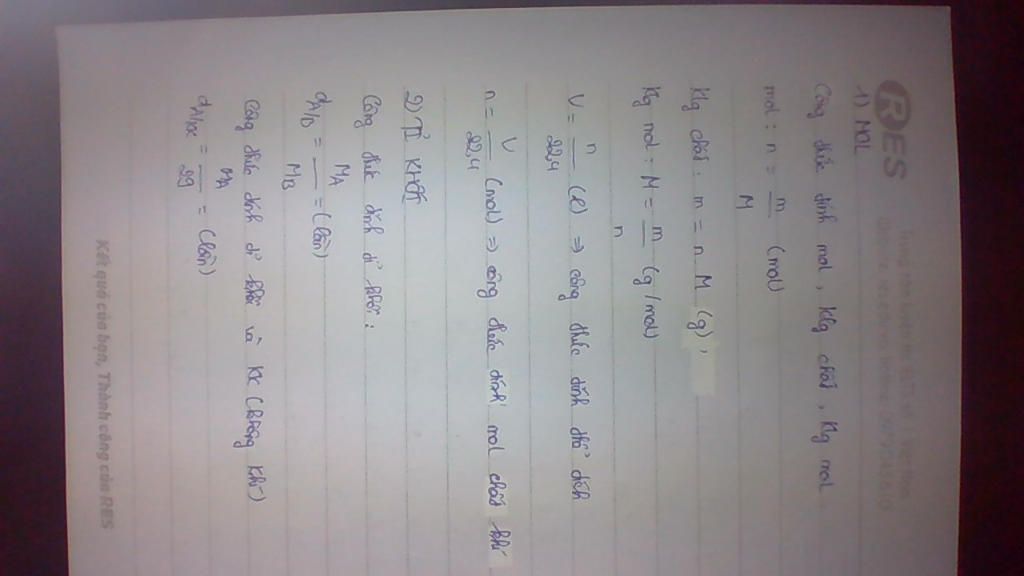 RES
1) MOL
Công thức tính mol, Klg chất, Klg mol
mol : n = m / M (mol)
Klg chất : m = n M (g),
Klg mol : M = m / n (g/mol)
V = n / 22,4 (l) => công thức tính thể tích
n = V / 22,4 (mol) => công thức tính mol chất khí
2) TỈ KHỐI
Công thức tính tỉ khối :
dA/B = MA / MB = (lần)
Công thức tính tỉ khối và KK (không khí)
dA/KK = MA / 29 = (lần)
Kết quả của bạn, Thành công của RES